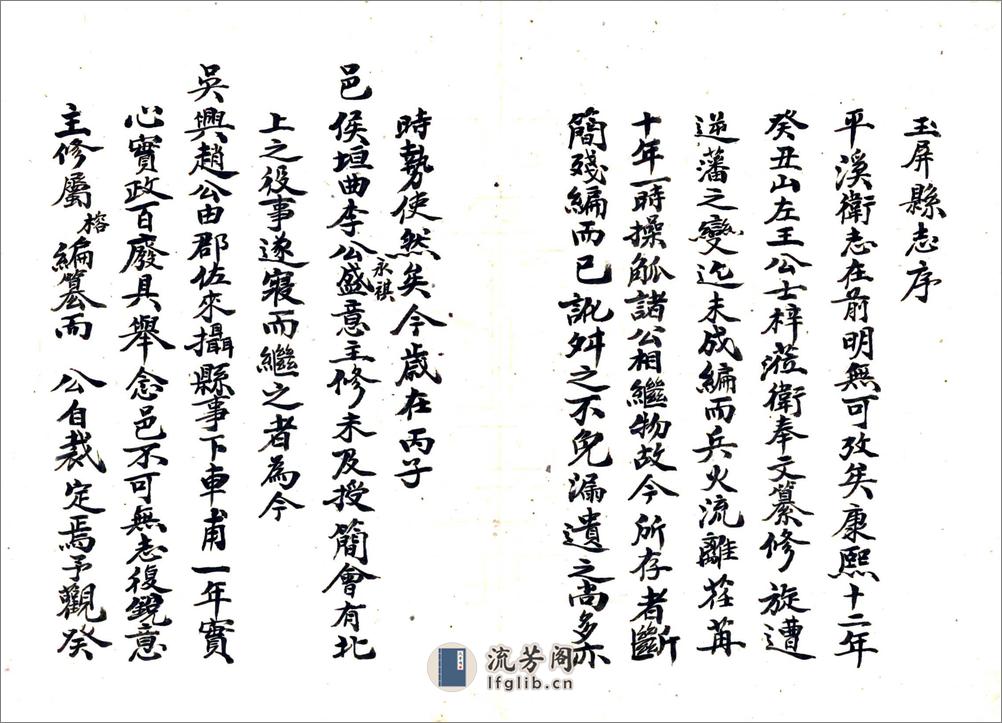 玉屏縣志序
平溪衛志在前明無可攷矣康熙十二年
癸丑山左王公士梓蒞衛奉文纂修旋遭
逆藩之變迄未成編而兵火流離荏苒
十年一時操觚諸公相繼物故今所存者斷
簡殘編而已訛舛之不免漏遺之尚多亦
時勢使然矣今歲在丙子
邑侯垣曲李公永祺盛意主修未及授簡會有北
上之役事遂寢而繼之者為今
吳興趙公由郡佐來攝縣事下車甫一年實
心實政百廢具舉念邑不可無志復銳意
主修屬榕編纂而 公自裁定焉予觀癸
流芳阁
lfglib.cn